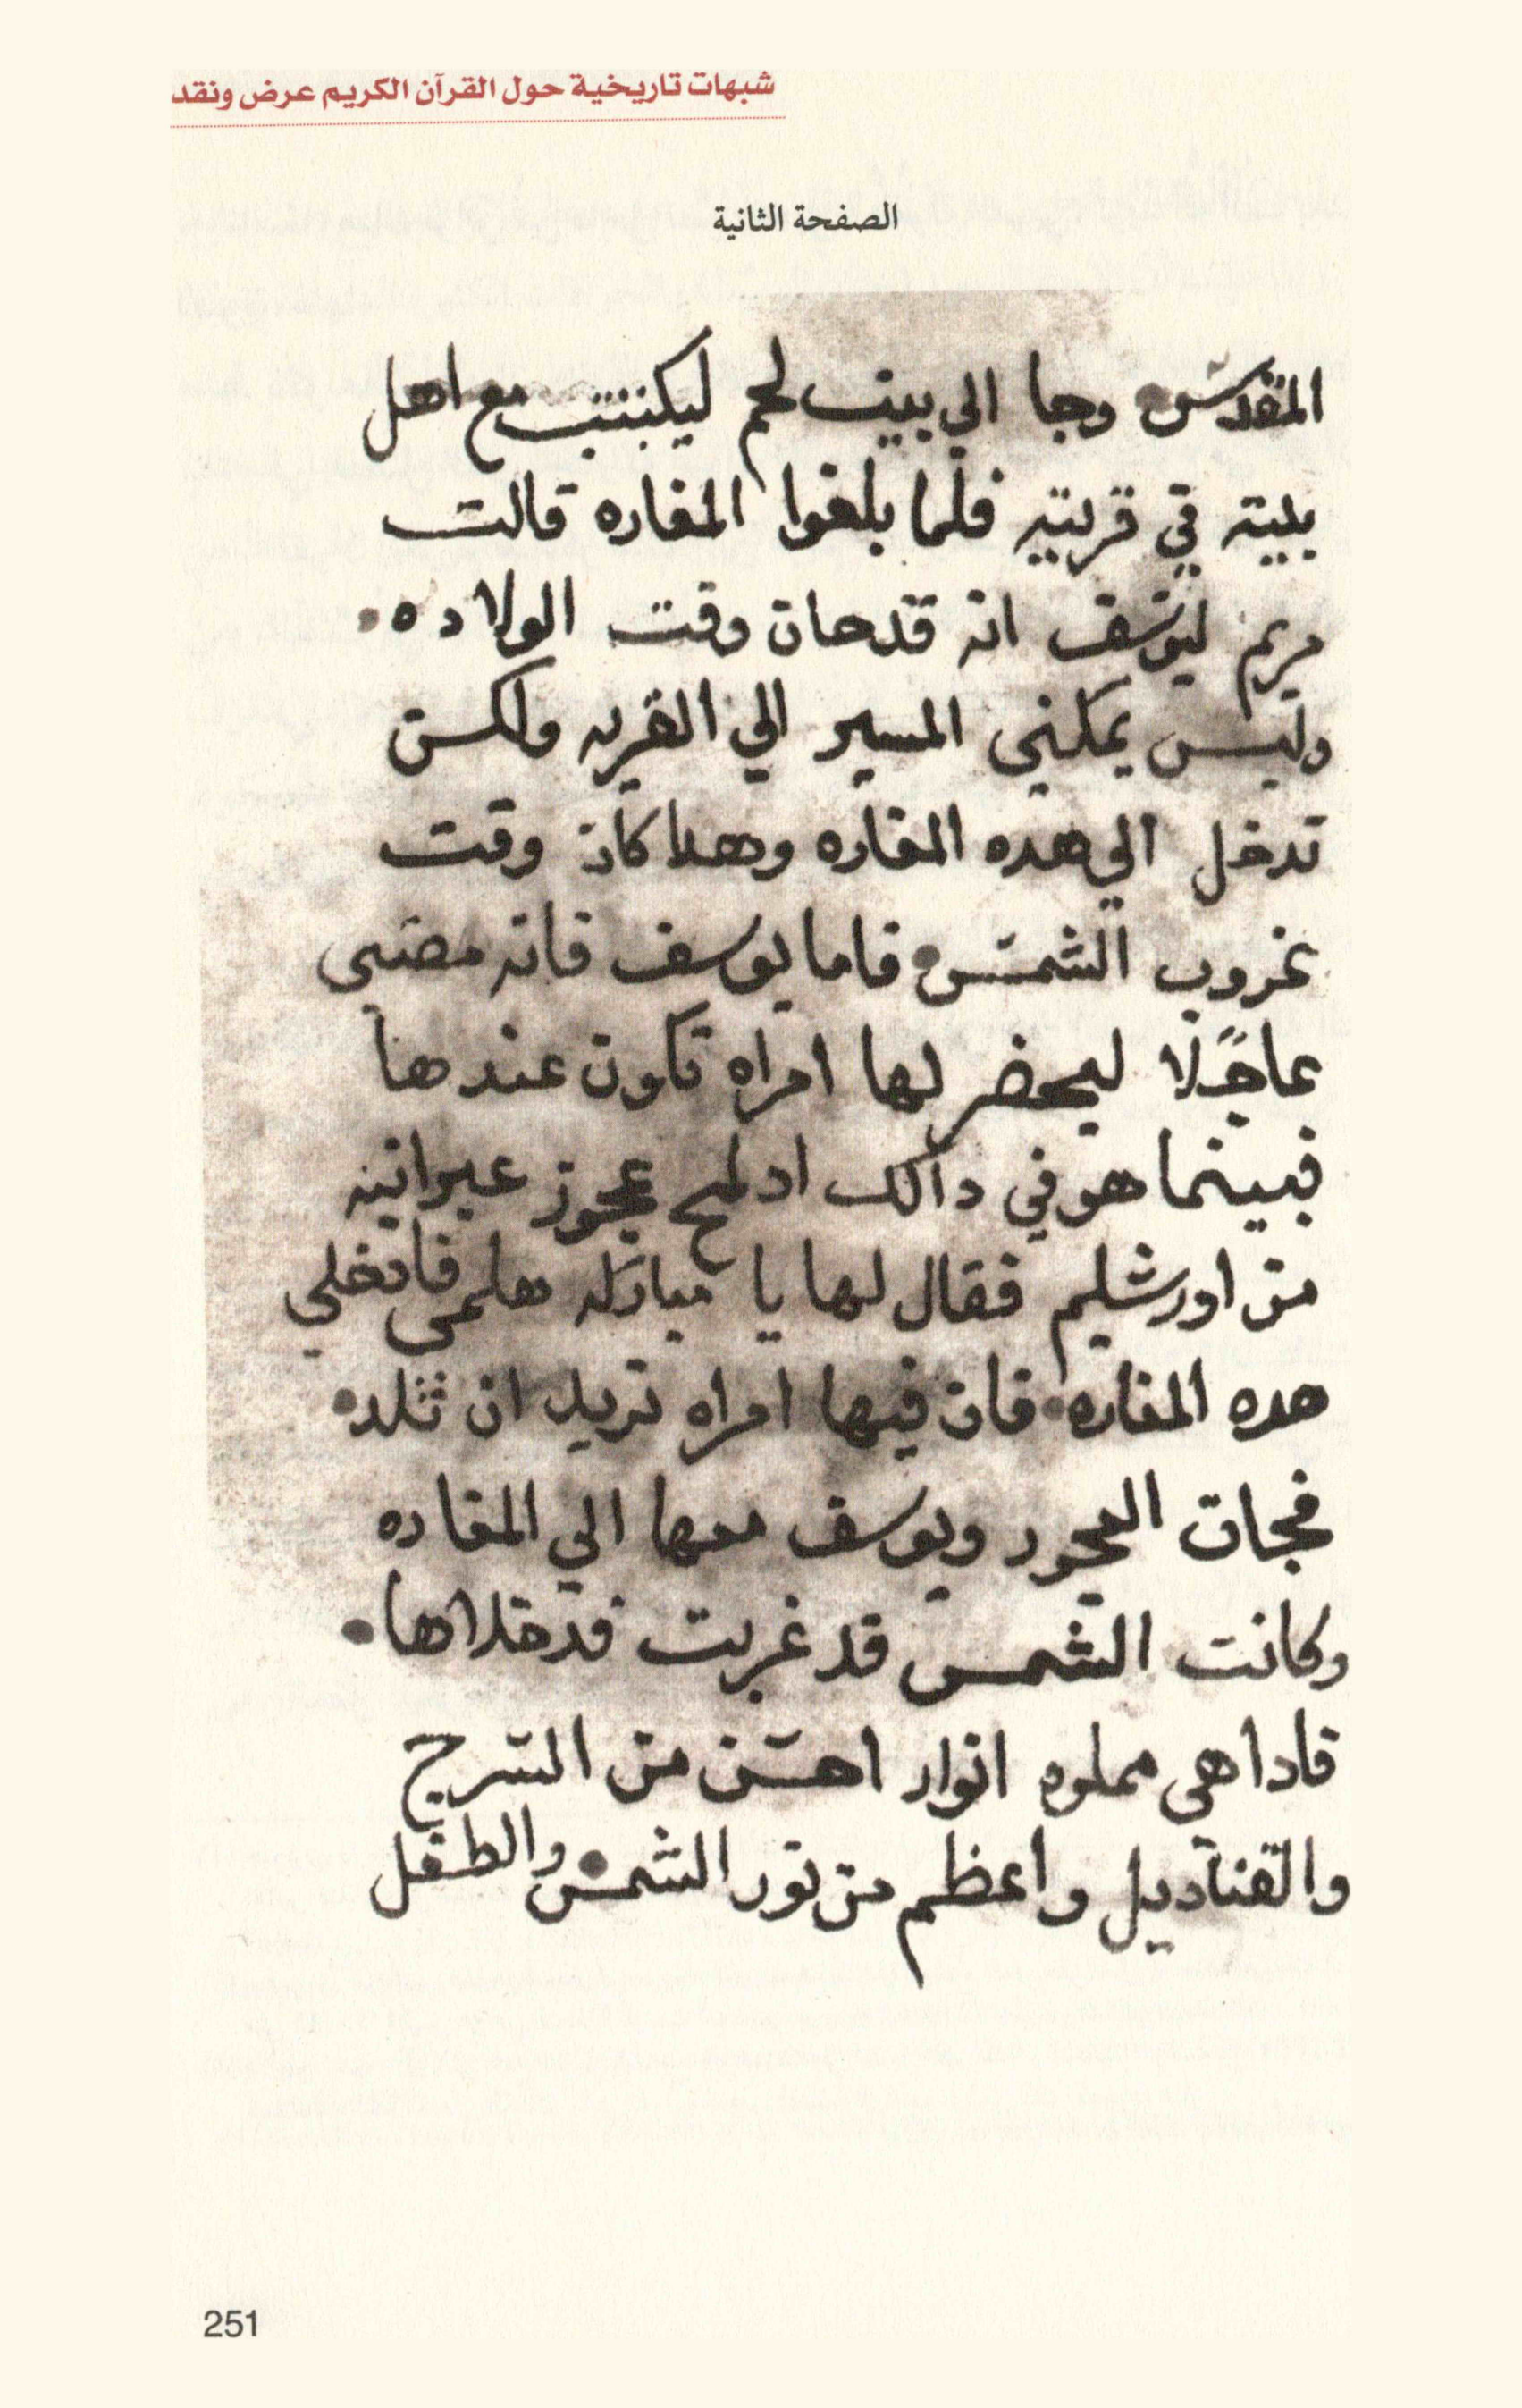 شبهات تاريخية حول القرآن الكريم عرض ونقد
الصفحة الثانية
المقدس وجا الي بيت لحم ليكتتب مع اهل
بيته في قريته فلما بلغوا المغاره قالت
مريم ليوسف انه قد حان وقت الولاده
وليس يمكنني المسير الي القريه ولكن
تدخل الي هده المغاره وهدا كان وقت
غروب الشمس فاما يوسف فانه مضي
عاجلًا ليحضر لها امراه تكون عندها
فبينما هو في دالك اد لمح عجوز عبرانيه
من اورشليم فقال لها يا مباركه هلمي فادخلي
هده المغاره فان فيها امراه تريد ان تلد
فجات العجوز ويوسف معها الي المغاره
وكانت الشمس قد غربت فدخلاها
فادا هي مملوه انوار احسن من السرج
والقناديل واعظم من نور الشمس والطفل
251